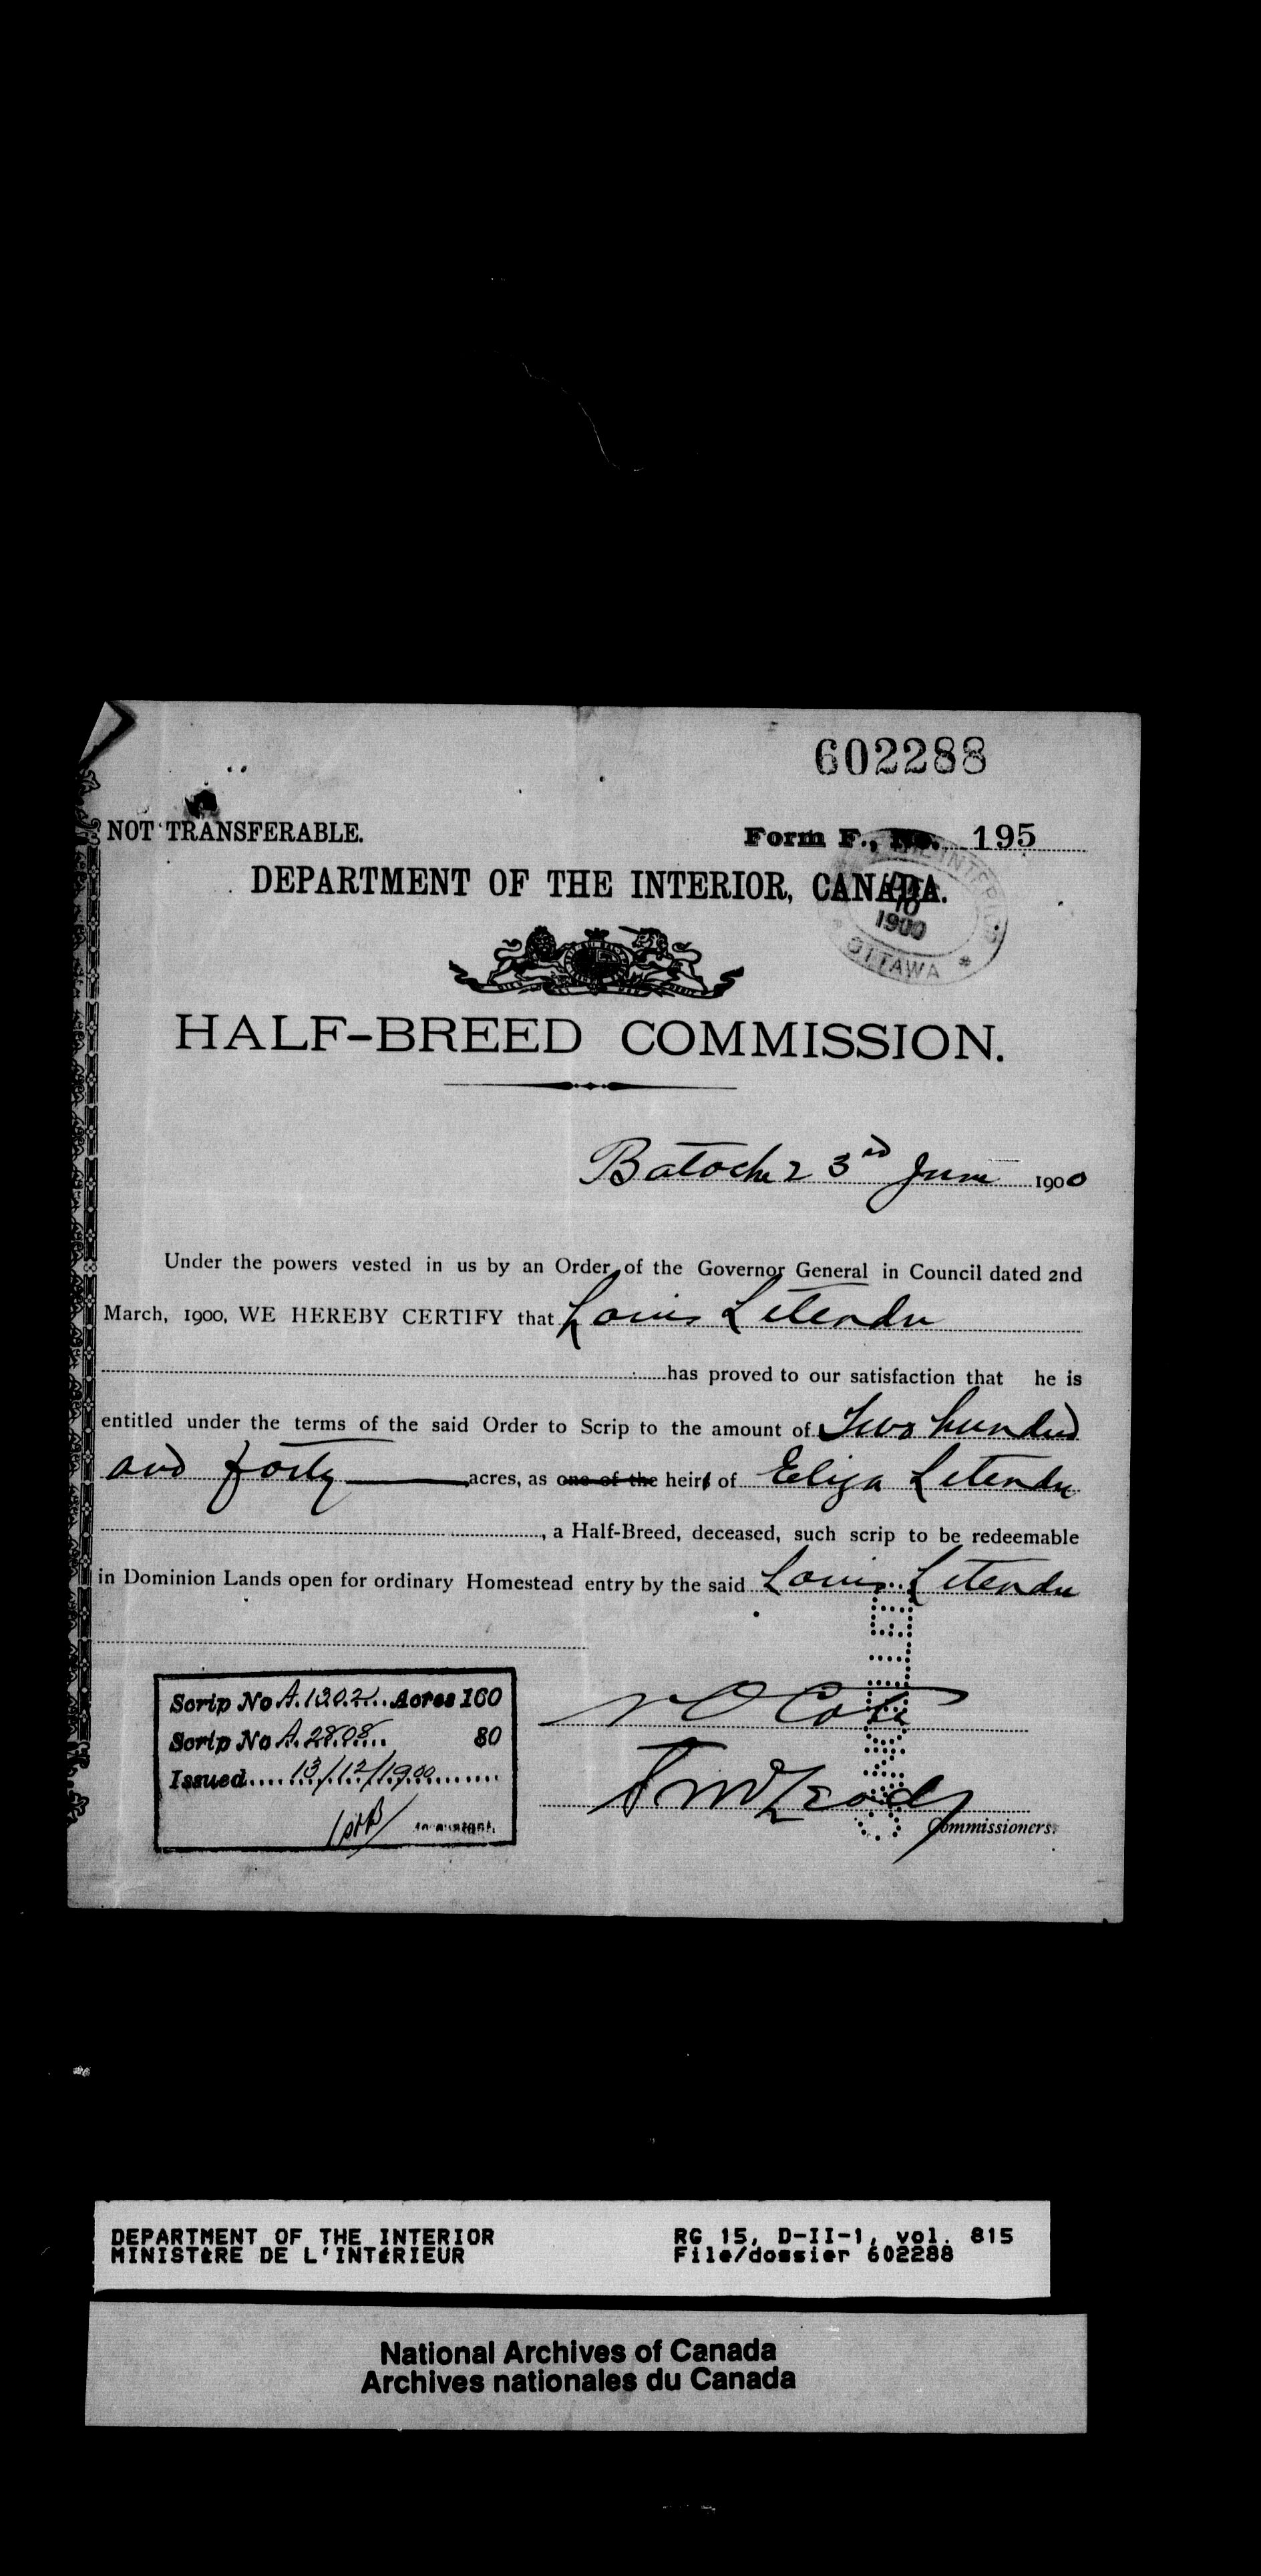 602288
NOT TRANSFERABLE.
Form F., No. 195
DEPARTMENT OF THE INTERIOR, CANADA.
INTERIOR
10
1900
OTTAWA *
HALF-BREED COMMISSION.
Batoche 23rd June 1900
Under the powers vested in us by an Order of the Governor General in Council dated 2nd
March, 1900, WE HEREBY CERTIFY that Louis Letendre
has proved to our satisfaction that he is
entitled under the terms of the said Order to Scrip to the amount of Two hundred
and forty acres, as one of the heirs of Eliza Letendre
, a Half-Breed, deceased, such scrip to be redeemable
in Dominion Lands open for ordinary Homestead entry by the said Louis Letendre
Scrip No A.1302 Acres 160
Scrip No A.2808 80
Issued 13/12/1900
N O Coté
CANCELLED
Commissioners.
DEPARTMENT OF THE INTERIOR
MINISTÈRE DE L'INTÉRIEUR
RG 15, D-II-1, vol. 815
File/dossier 602288
National Archives of Canada
Archives nationales du Canada